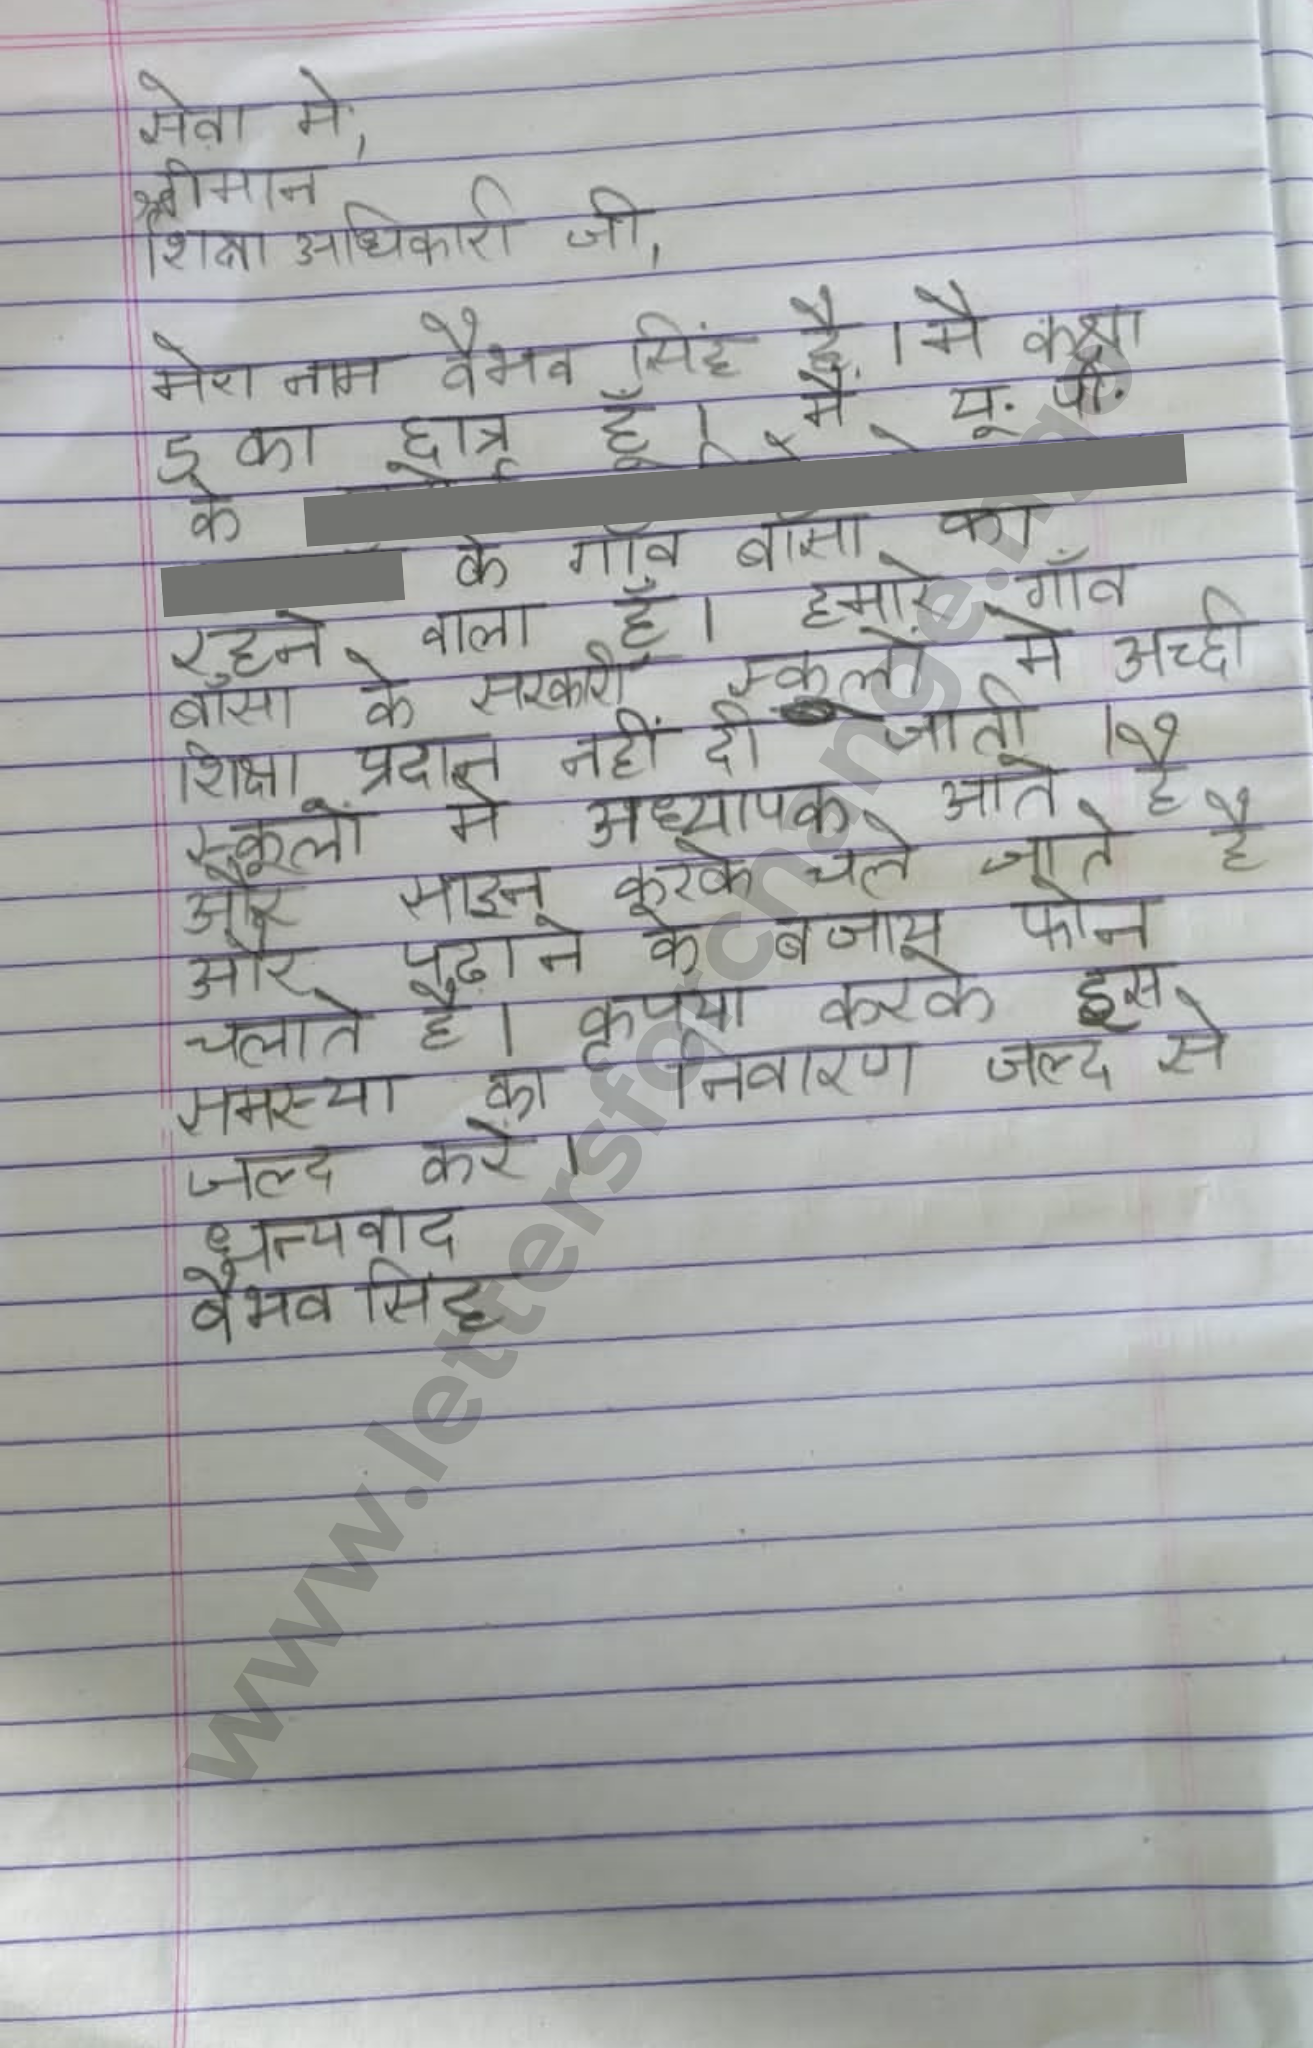 सेवा में,
श्रीमान
शिक्षा अधिकारी जी,
मेरा नाम वैभव सिंह है। मै कक्षा
5 का छात्र हूँ। मैं यू. पी.
के
के गाँव बाँसा का
रहने वाला हूँ। हमारे गाँव
बाँसा के सरकारी स्कूलों मे अच्छी
शिक्षा प्रदान नहीं दी जाती।
स्कूलों मे अध्यापक आते है
और साइन करके चले जाते है
और पढ़ाने के बजाय फोन
चलाते है। कृपया करके इस
समस्या का निवारण जल्द से
जल्द करें।
धन्यवाद
वैभव सिंह
www.lettersforchange.